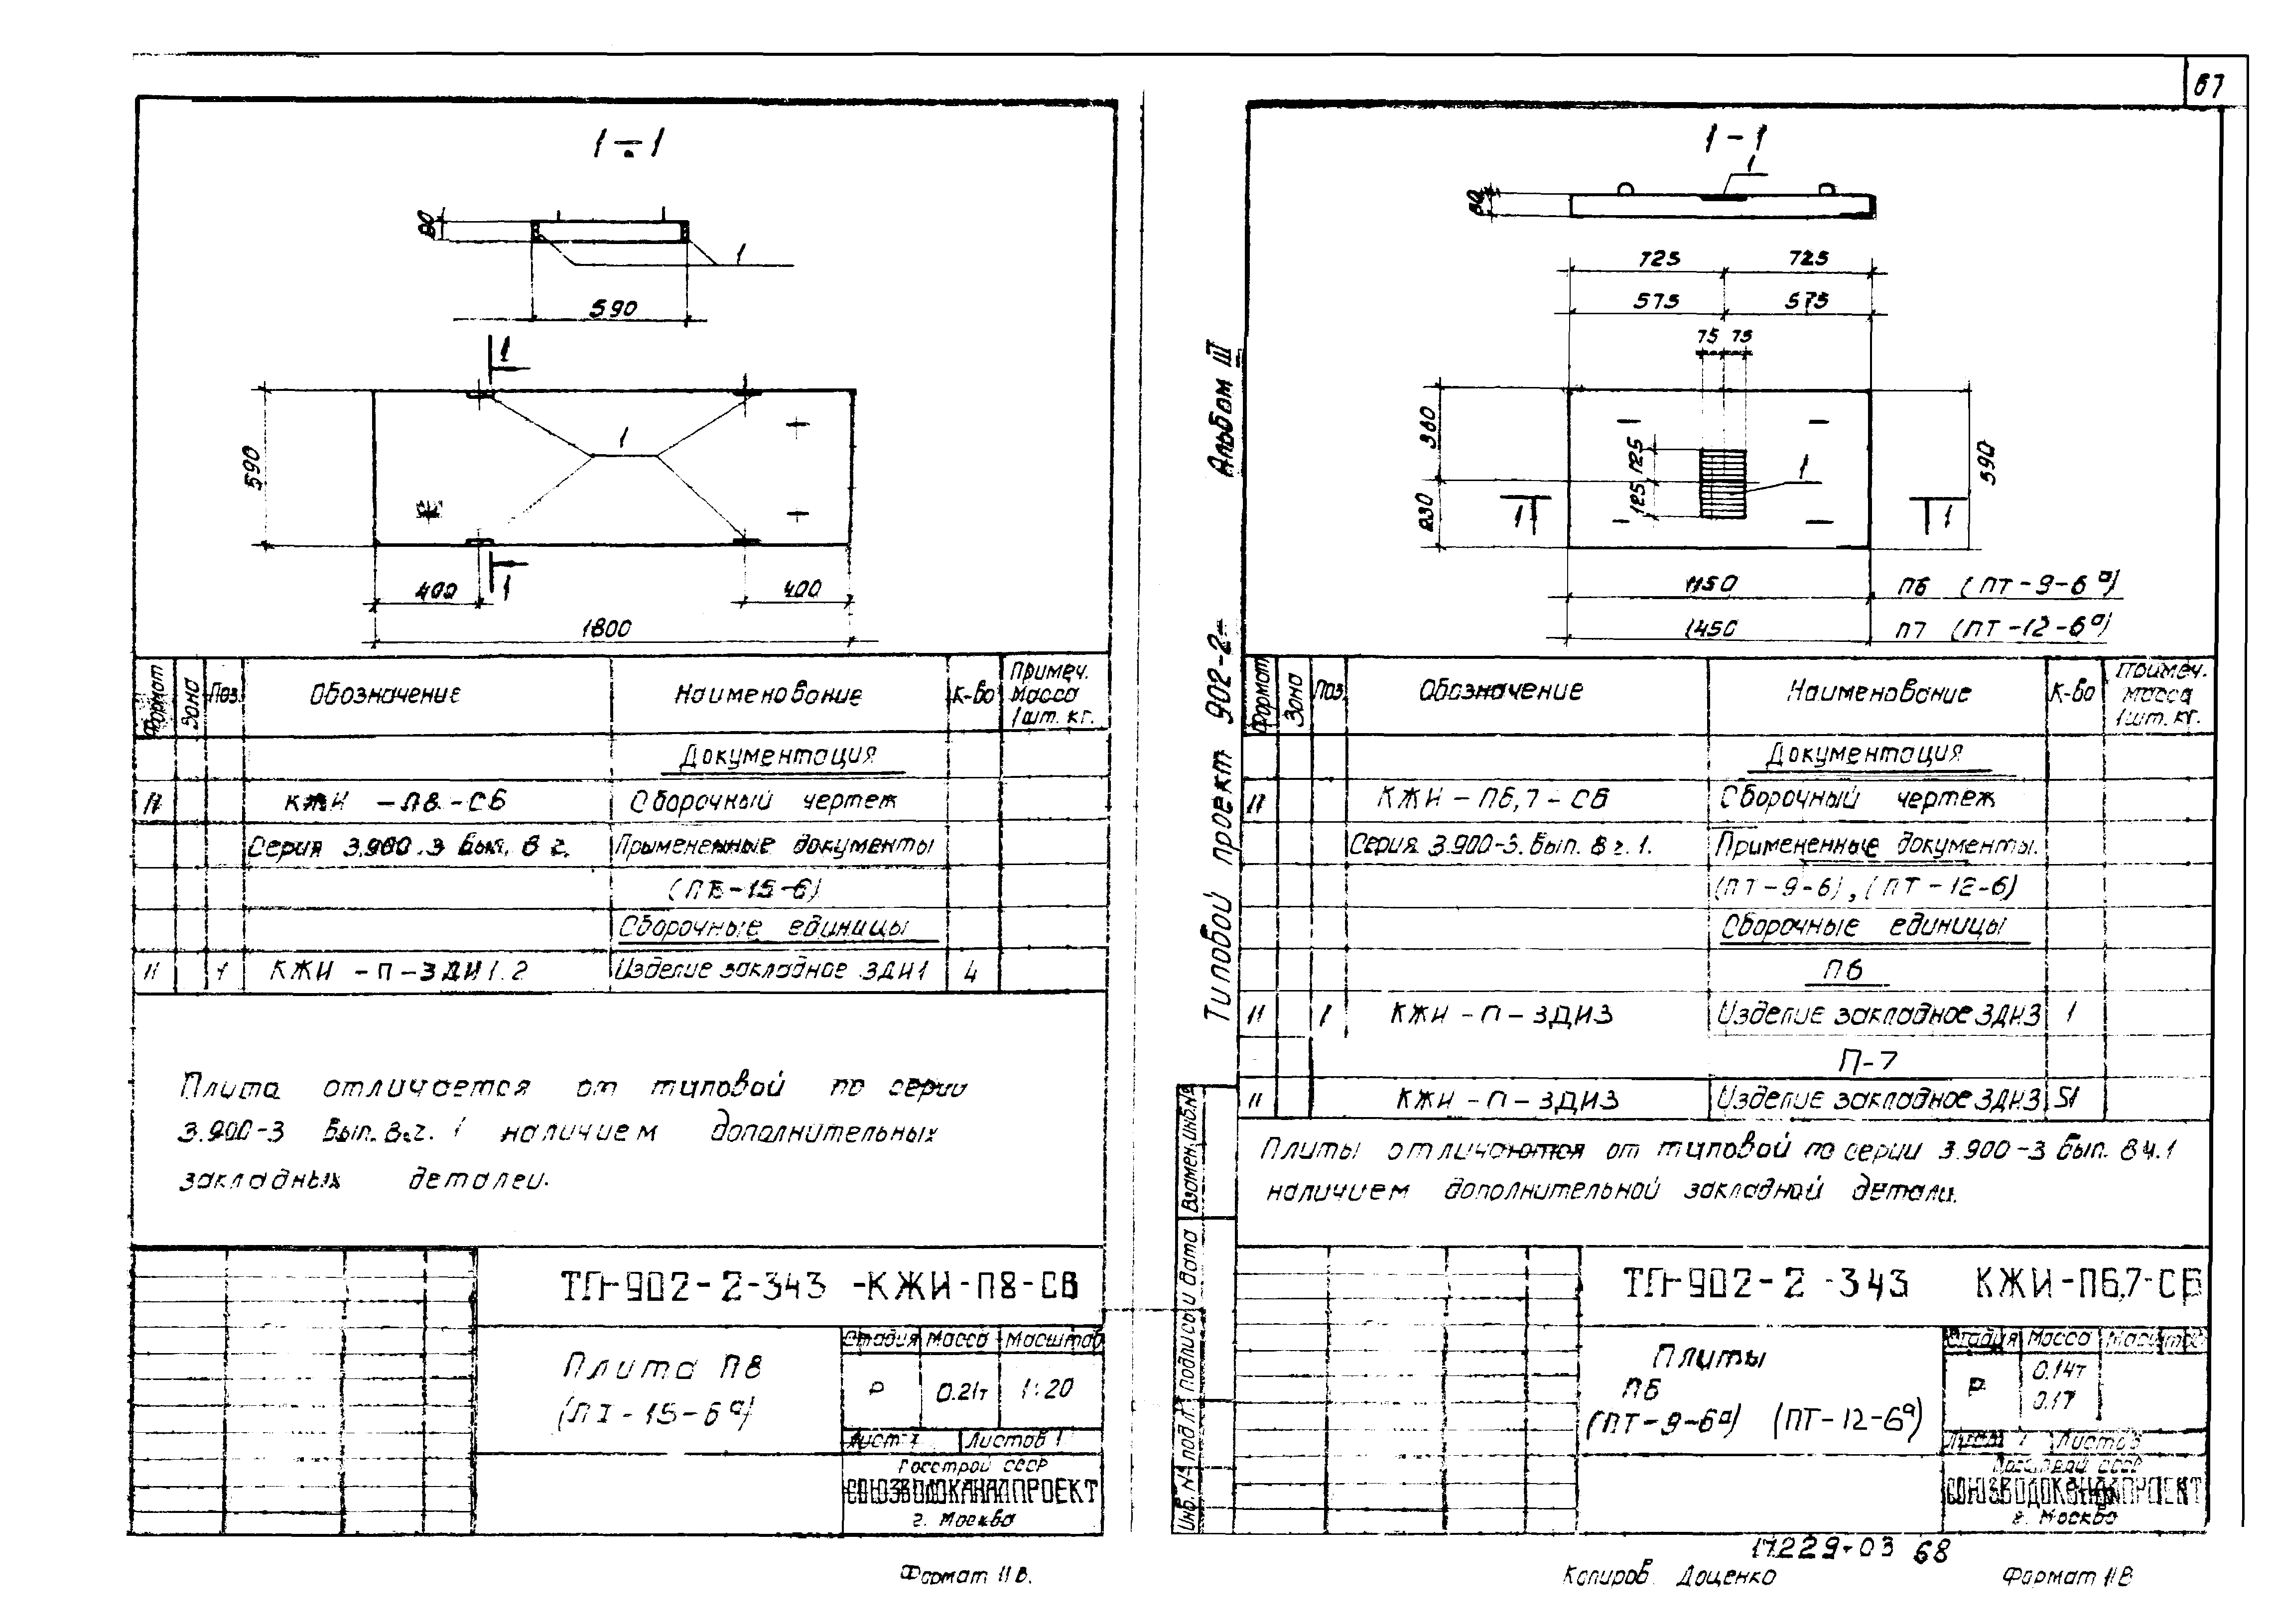 67
1-1
80
1
590
1
590
1
1
400
400
1800
Формат
Зона
Поз.
Обозначение
Наименование
К-во
Примеч. масса 1шт. кг.
Документация
11 КЖИ -П8-СБ Сборочный чертеж
Серия 3.900-3 Вып. 8 г. Примененные документы
(ПТ-15-6)
Сборочные единицы
11 1 КЖИ -П-ЗДИ1.2 Изделие закладное ЗДИ1 4
Плита отличается от типовой по серии
3.900-3 Вып. 8 ч. 1 наличием дополнительных
закладных деталей.
ТП-902-2-343 -КЖИ-П8-СБ
Плита П8
(ПТ-15-6а)
Стадия Масса Масштаб
Р 0.21т 1:20
Лист 1 Листов 1
Госстрой СССР
СОЮЗВОДОКАНАЛПРОЕКТ
г. Москва
Формат 11В.
Альбом III
Типовой проект 902-2-
Инв. № подл.
Подпись и дата
Взамен. инв.№
1-1
1
80
725 725
575 575
75 75
360
230
125
125
1
590
1
1
1150 П6 (ПТ-9-6а)
1450 П7 (ПТ-12-6а)
Формат
Зона
Поз
Обозначение
Наименование
К-во
Примеч. масса 1шт. кг.
Документация
11 КЖИ-П6,7-СБ Сборочный чертеж
Серия 3.900-3. Вып. 8 ч. 1. Примененные документы.
(ПТ-9-6), (ПТ-12-6)
Сборочные единицы
П6
11 1 КЖИ-П-ЗДИ3 Изделие закладное ЗДИ3 1
П-7
11 КЖИ-П-ЗДИ3 Изделие закладное ЗДИ3
Плиты отличаются от типовой по серии 3.900-3 Вып. 8 ч.1
наличием дополнительной закладной детали.
ТП-902-2-343 КЖИ-П6,7-СБ
Плиты
П6
(ПТ-9-6а) (ПТ-12-6а)
Стадия Масса Масштаб
Р 0.14т
0.17
Лист Листов
Госстрой СССР
СОЮЗВОДОКАНАЛПРОЕКТ
г. Москва
17229-03 68
Копиров. Доценко
Формат 11В